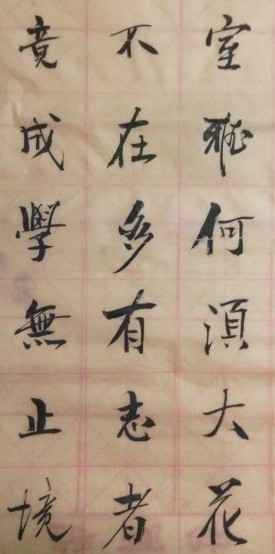 室雅何須大花
不在多有志者
竟成學無止境